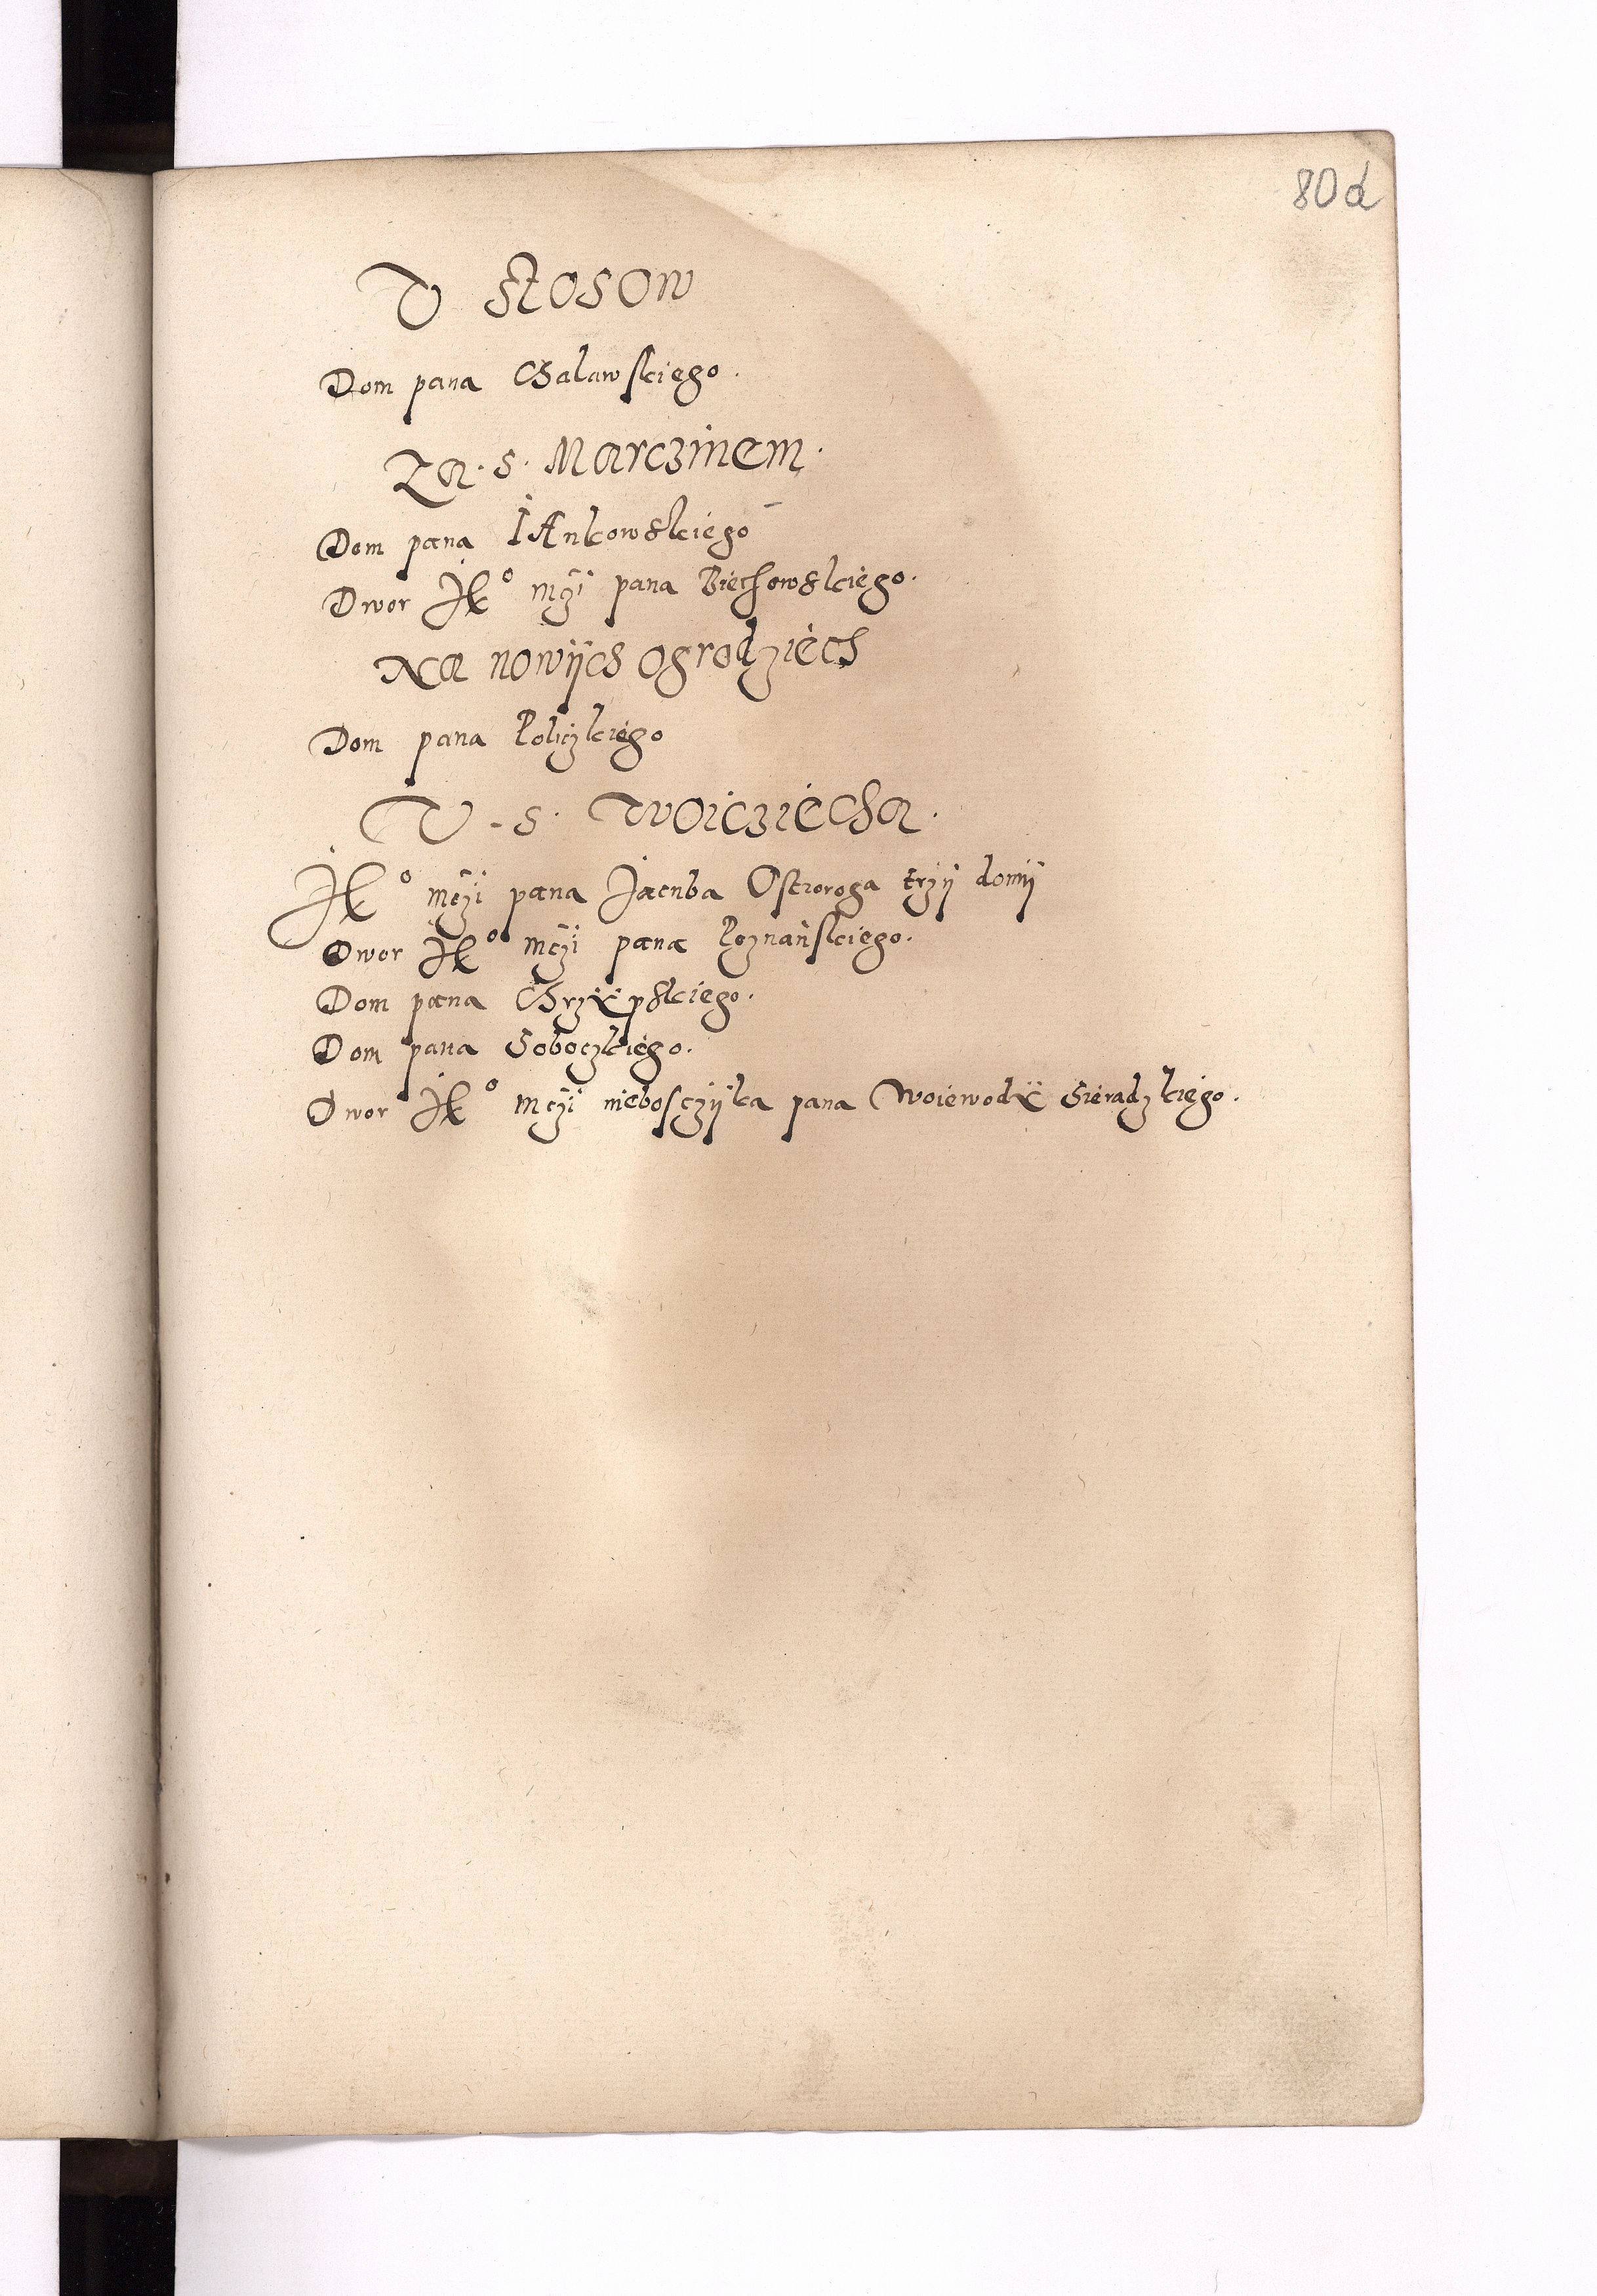 80d
V stosow
Dom pana Chalawskiego.
Za. s. Marczinem.
Dom pana IAnkowskiego
Dwor Jko mczi pana Biechowskiego.
Na nowijch ogrodziech
Dom pana Policzkiego
V. s. Woicziecha.
Jko mczi pana Jacuba Ostroroga trzij domij
Dwor Jko mczi pana Poznańskiego.
Dom pana Chrzÿpskiego.
Dom pana Soboczkiego.
Dwor Jko mczi nieboszczijka pana Woiewodÿ Sieradzkiego.